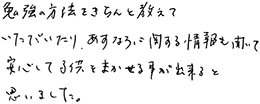 勉強の方法をきちんと教えて
いただいたり、あすなろに関する情報も聞いて
安心して子供をまかせる事が出来ると
思いました。